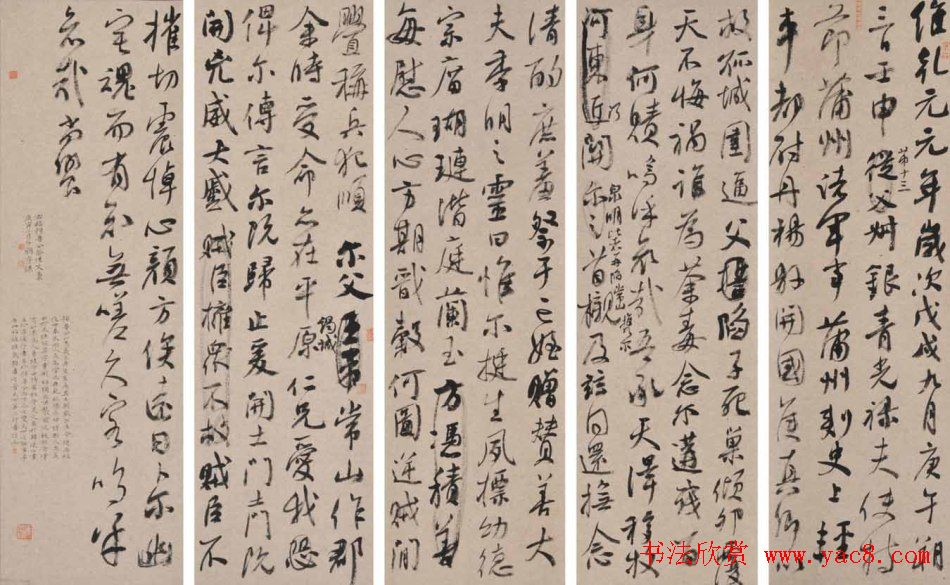 維乾元元年歲次戊戌九月庚午朔
三日壬申第十三從父叔銀青光祿夫使持
節蒲州諸軍事蒲州刺史上輕
車都尉丹楊縣開國侯真卿以
救孤城圍逼父擒陷子死巢傾卵覆
天不悔禍誰為荼毒念爾遘殘
身何贖嗚呼哀哉吾承天澤移牧
河東近
爾之首櫬及茲同還撫念
清酌庶羞祭于亡姪贈贊善大
夫季明之靈曰惟爾挺生夙標幼德
宗廟瑚璉階庭蘭玉方憑積善
每慰人心方期戩穀何圖逆賊間
釁稱兵犯順爾父竭誠常山作郡
余時受命亦在平原仁兄愛我恐
俾爾傳言爾既歸止爰開土門土門既
開兇威大蹙賊臣擁眾不救賊臣不
摧切震悼心顏方俟遠日卜爾幽
宅魂而有知無嗟久客嗚呼
哀哉尚饗
书法欣赏 www.yac8.com